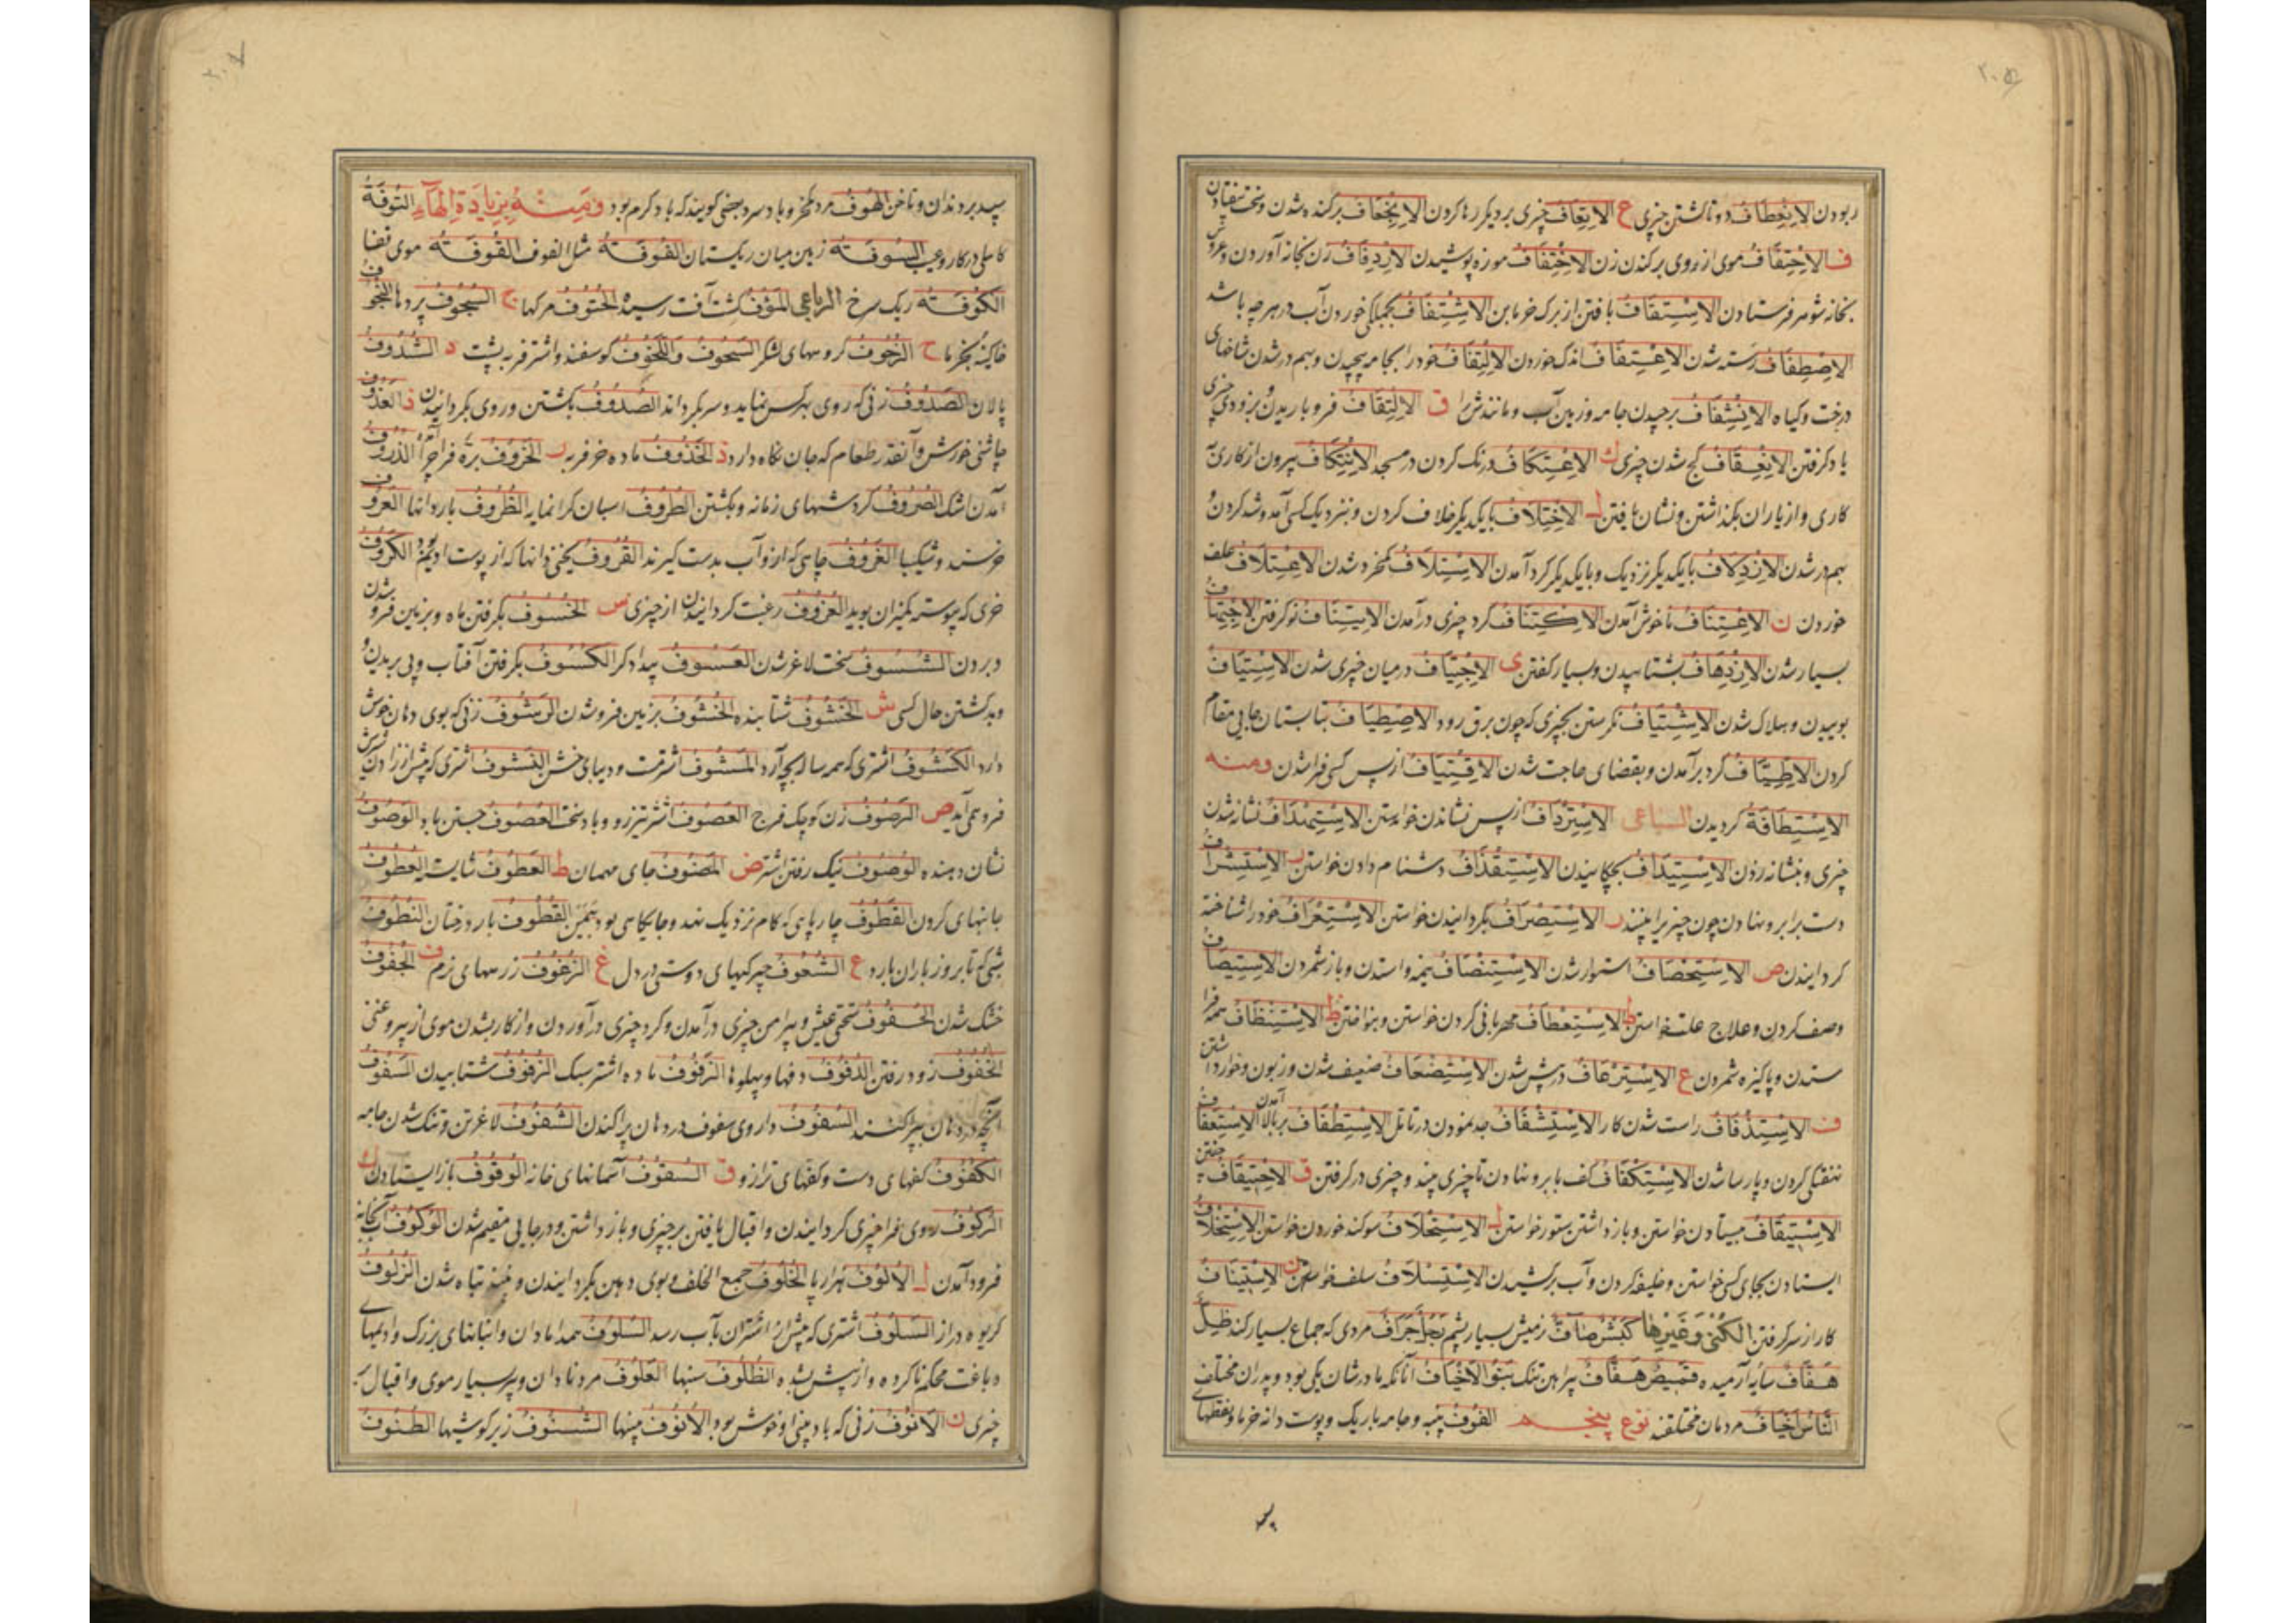 ربودن الانعطاف دوتا گشتن چیزی ع الایعاف چیزی بر دیگر رها کردن الانجعاف برکنده شدن و سخت بیفتادن
ف الاحتفاف موی از روی برکندن زن الاختفاف موزه پوشیدن الازدفاف زن بخانه آوردن و عروس
بخانه شوهر فرستادن الاستفاف بافتن از برک خرما بن الاشتفاف بجملگی خوردن آب در هر چه باشد
الاصطفاف رسته شدن الاعتفاف اندک خوردن الالتفاف خود را بجامه پیچیدن و بهم در شدن شاخهای
درخت و گیاه الانشفاف برچیدن جامه و زمین آب و مانندش را ق الالتقاف فرو باریدن و بزودی چیزی
یاد گرفتن الانعقاف کج شدن چیزی ك الاعتکاف درنگ کردن در مسجد الانتکاف بیرون از کاری
کاری و از یاران بگذاشتن و نشان یافتن ل الاختلاف با یکدیگر خلاف کردن و بنزدیک کسی آمد و شد کردن و
بهم در شدن الازدلاف با یکدیگر نزدیک و با یکدیگر گرد آمدن الاستلاف کمخرد شدن الاعتلاف علف
خوردن ن الاعتناف ناخوش آمدن الاکتناف گرد چیزی درآمدن الایتناف نو گرفتن الاجتهاف
بسیار شدن الازدهاف بشتابیدن و بسیار گفتن ی الاجتیاف در میان چیزی شدن الاستیاف
بوییدن و هلاک شدن الاشتیاف نگرستن بچیزی که چون برق رود الاصطیاف بتابستان جایی مقام
کردن الاطیاف گرد برآمدن و بقضای حاجت شدن الاقتیاف از پس کسی فرا شدن ومنه
الاستطافة گردیدن السباعی الاسترداف از پس نشاندن خواستن الاستهداف نشانه شدن
چیزی و بنشانه زدن الاستیداف بچکانیدن الاستقذاف دشنام دادن خواستن ر الاستشراف
دست بر ابرو نهادن چون چیزی را بینند الاستصراف بگردانیدن خواستن الاستعراف خود را شناخته
گردانیدن ص الاستحصاف استوار شدن الاستنصاف نیمه واستدن و باز شمردن الاستیصاف
وصف کردن و علاج علت خواستن ط الاستعطاف مهربانی کردن خواستن و بنواختن ظ الاستنظاف همه فرا
ستدن و پاکیزه شمردن ع الاسترعاف در پیش شدن الاستضعاف ضعیف شدن و زبون و خوار داشتن
ف الاستذفاف راست شدن کار الاستشفاف جد نمودن در تامل الاستطفاف بر بالا آمدن الاستعفاف
نهفتگی کردن و پارسا شدن الاستکفاف کف بابرو نهادن تا چیزی بیند و چیزی در گرفتن ق الاحتیقاف
الاستیقاف بیستادن خواستن و باز داشتن ستور خواستن ل الاستحلاف سوگند خوردن خواستن الاستخلاف
ایستادن بجای کسی خواستن و خلیفه کردن و آب برکشیدن الاستسلاف سلف خواستن ن الاستیناف
کار از سر گرفتن الکنی وغیرها کبش صاف نر میش بسیار پشم جراف مردی که جماع بسیار کند ظل
هفاف سایه آرمیده قمیص هفاف پیراهن تنک بنو الاخیاف آنانکه مادرشان یکی بود و پدران مختلف
الناس اخیاف مردمان مختلفند نوع پنجم الفوف پنبه و جامه باریک و پوست دانه خرما و نقطهای
سپید بر دندان و ناخن الهوف مرد کمخرد و باد سرد و بعضی گویند که باد گرم بود ومنه بزیادة الهاء التوفة
کاهلی در کار و عیب السوفة زمین میان ریگستان الفوفة مثل الفوف القوفة موی قفا
الکوفة ریگ سرخ الرباعی المؤف کشت آفت رسیده الحتوف مرگها ج السجوف پردها
خاکینه بخرما ح الزحوف گروههای لشکر السحوف واللحوف گوسفند و اشتر فربه پشت د الشدوف
پالان الصدوف زنی که روی بهرکس نماید و سر بگرداند الصدوف بگشتن و روی بگردانیدن ذ العذوف
چاشنی خورش و آنقدر طعام که جان نگاه دارد ذ الخذوف ماده خر فربه ر الخروف بره فراخرو الذروف
آمدن اشک الصروف گردشهای زمانه و بگشتن الطروف اسبان گرانمایه الظروف باردانها العروف
خرسند و شکیبا الغروف چاهی که ازو آب بدست گیرند القروف یخنی دانها که از پوست ادیم بود الکروف
خری که پیوسته کمیزان بوید العزوف رغبت گردانیدن از چیزی س الخسوف بگرفتن ماه و بزمین فرو شدن
و بردن الشسوف سخت لاغر شدن العسوف بیدادگر الکسوف بگرفتن آفتاب و پی بریدن و
و بد گشتن حال کسی ش الخشوف شتابنده الخشوف بزمین فرو شدن الرشوف زنی که بوی دهان خوش
دارد الکشوف اشتری که همه ساله بچه آرد النشوف اشتری که پیش از زادن شیرش
فرو همی آید ص الرصوف زن کوچک فرج العصوف اشتر تیزرو و باد سخت العصوف جستن باد الوصوف
نشان دهنده الوضوف نیک رفتن اشتر ض المضوف جای مهمان ط العطوف شایسته العطوف
جانبهای گردن القطوف چارپایی که گام نزدیک نهد القطوف بار درختان النطوف
شبی که تا بروز باران بارد ع الشعوف چیرگیهای دوستی در دل غ الزغوف زرههای نرم ف الجفوف
خشک شدن الحفوف سختی عیش و پیرامن چیزی درآمدن و گرد چیزی درآوردن و از کار بشدن موی از بیروغنی
الخفوف زود رفتن الدفوف دفها و پهلوها الزفوف ماده اشتر سبک الزفوف شتابیدن السفوف
آنچه در دهان بپراکنند السفوف داروی سفوف در دهان پراکندن الشفوف لاغر تن و تنک شدن جامه
الکفوف کفهای دست و کفهای ترازو ق السقوف آسمانهای خانه الوقوف باز ایستادن ك
الرکوف روی فرا چیزی گردانیدن و اقبال یافتن بر چیزی و باز داشتن و در جایی مقیم شدن الوکوف آب خانه
فرود آمدن ل الالوف هزارها الخلوف جمع الخلف و بوی دهن بگردانیدن و تباه شدن الزلوف
گریوه دراز السلوف اشتری که پیش از اشتران بآب رسد السلوف همدامادان و انبانهای بزرگ و ادیمهای
دباغت محکم ناکرده و از پیش بشده الظلوف سنبها العلوف مرد نادان و پیر بسیار موی و اقبال بر
چیزی ن الانوف زنی که باد بینی او خوش بود الانوف بینیها الشنوف زبر گوشیها الطنوف